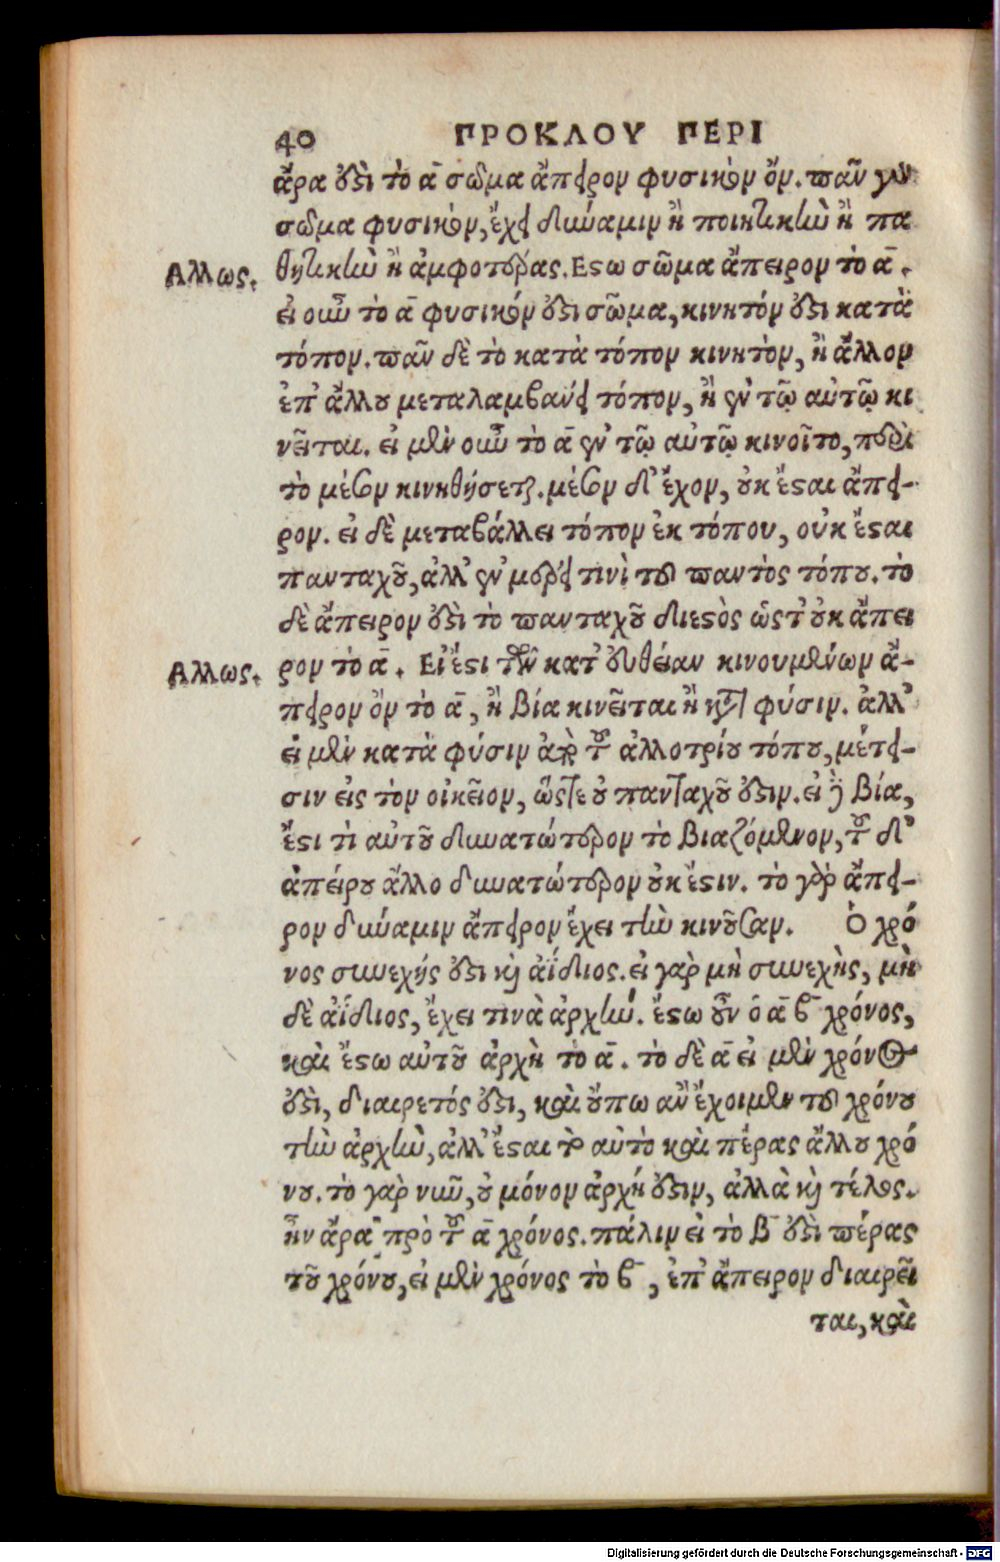 40 ΠΡΟΚΛΟΥ ΠΕΡΙ
ἄρα ἐϛὶ τὸ α̅ σῶμα ἄπειρον φυσικὸν ὄν. πᾶν γὰρ
σῶμα φυσικὸν, ἔχει δύναμιν ἢ ποιητικὴν ἢ πα
Αλλως. θητικὴν ἢ ἀμφοτέρας. Εϛω σῶμα ἄπειρον τὸ α̅.
εἰ οὖν τὸ α̅ φυσικόν ἐϛι σῶμα, κινητόν ἐϛι κατὰ
τόπον. πᾶν δὲ τὸ κατὰ τόπον κινητὸν, ἢ ἄλλον
ἐπ' ἄλλου μεταλαμβάνει τόπον, ἢ ἐν τῷ αὐτῷ κι
νεῖται. εἰ μὲν οὖν τὸ α̅ ἐν τῷ αὐτῷ κινοῖτο, περὶ
τὸ μέσον κινηθήσεται. μέσον δ' ἔχον, οὐκ ἔϛαι ἄπει-
ρον. εἰ δὲ μεταβάλλει τόπον ἐκ τόπου, οὐκ ἔϛαι
πανταχοῦ, ἀλλ' ἐν μέρει τινὶ τοῦ παντὸς τόπου. τὸ
δὲ ἄπειρον ἐϛὶ τὸ πανταχοῦ διεϛὸς ὥϛτ' οὐκ ἄπει
Αλλως. ρον τὸ α̅. Εἰ ἔϛι τῶν κατ' εὐθεῖαν κινουμένων ἄ-
πειρον ὂν τὸ α̅, ἢ βίᾳ κινεῖται ἢ κατὰ φύσιν. ἀλλ'
εἰ μὲν κατὰ φύσιν ἀπὸ τοῦ ἀλλοτρίου τόπου, μέτει-
σιν εἰς τὸν οἰκεῖον, ὥϛτε οὐ πανταχοῦ ἐϛιν. εἰ δὲ βίᾳ,
ἔϛι τὶ αὐτοῦ δυνατώτερον τὸ βιαζόμενον, τοῦ δ'
ἀπείρου ἄλλο δυνατώτερον οὐκ ἔϛιν. τὸ γὰρ ἄπει-
ρον δύναμιν ἄπειρον ἔχει τὴν κινοῦσαν. Ὁ χρό
νος συνεχής ἐϛι καὶ ἀΐδιος. εἰ γὰρ μὴ συνεχὴς, μὴ
δὲ ἀΐδιος, ἔχει τινὰ ἀρχήν. ἔϛω οὖν ὁ α̅ β̅ χρόνος,
καὶ ἔϛω αὐτοῦ ἀρχὴ τὸ α̅. τὸ δὲ α̅ εἰ μὲν χρόνος
ἐϛὶ, διαιρετός ἐϛι, καὶ οὔπω ἂν ἔχοιμεν τοῦ χρόνου
τὴν ἀρχὴν, ἀλλ' ἔϛαι τὸ αὐτὸ καὶ πέρας ἄλλου χρό
νου. τὸ γὰρ νῦν, οὐ μόνον ἀρχή ἐϛιν, ἀλλὰ καὶ τέλος.
ἦν ἄρα πρὸ τοῦ α̅ χρόνος. πάλιν εἰ τὸ β̅ ἐϛὶ πέρας
τοῦ χρόνου, εἰ μὲν χρόνος τὸ β̅, ἐπ' ἄπειρον διαιρεῖ
ται, καὶ
Digitalisierung gefördert durch die Deutsche Forschungsgemeinschaft - DFG